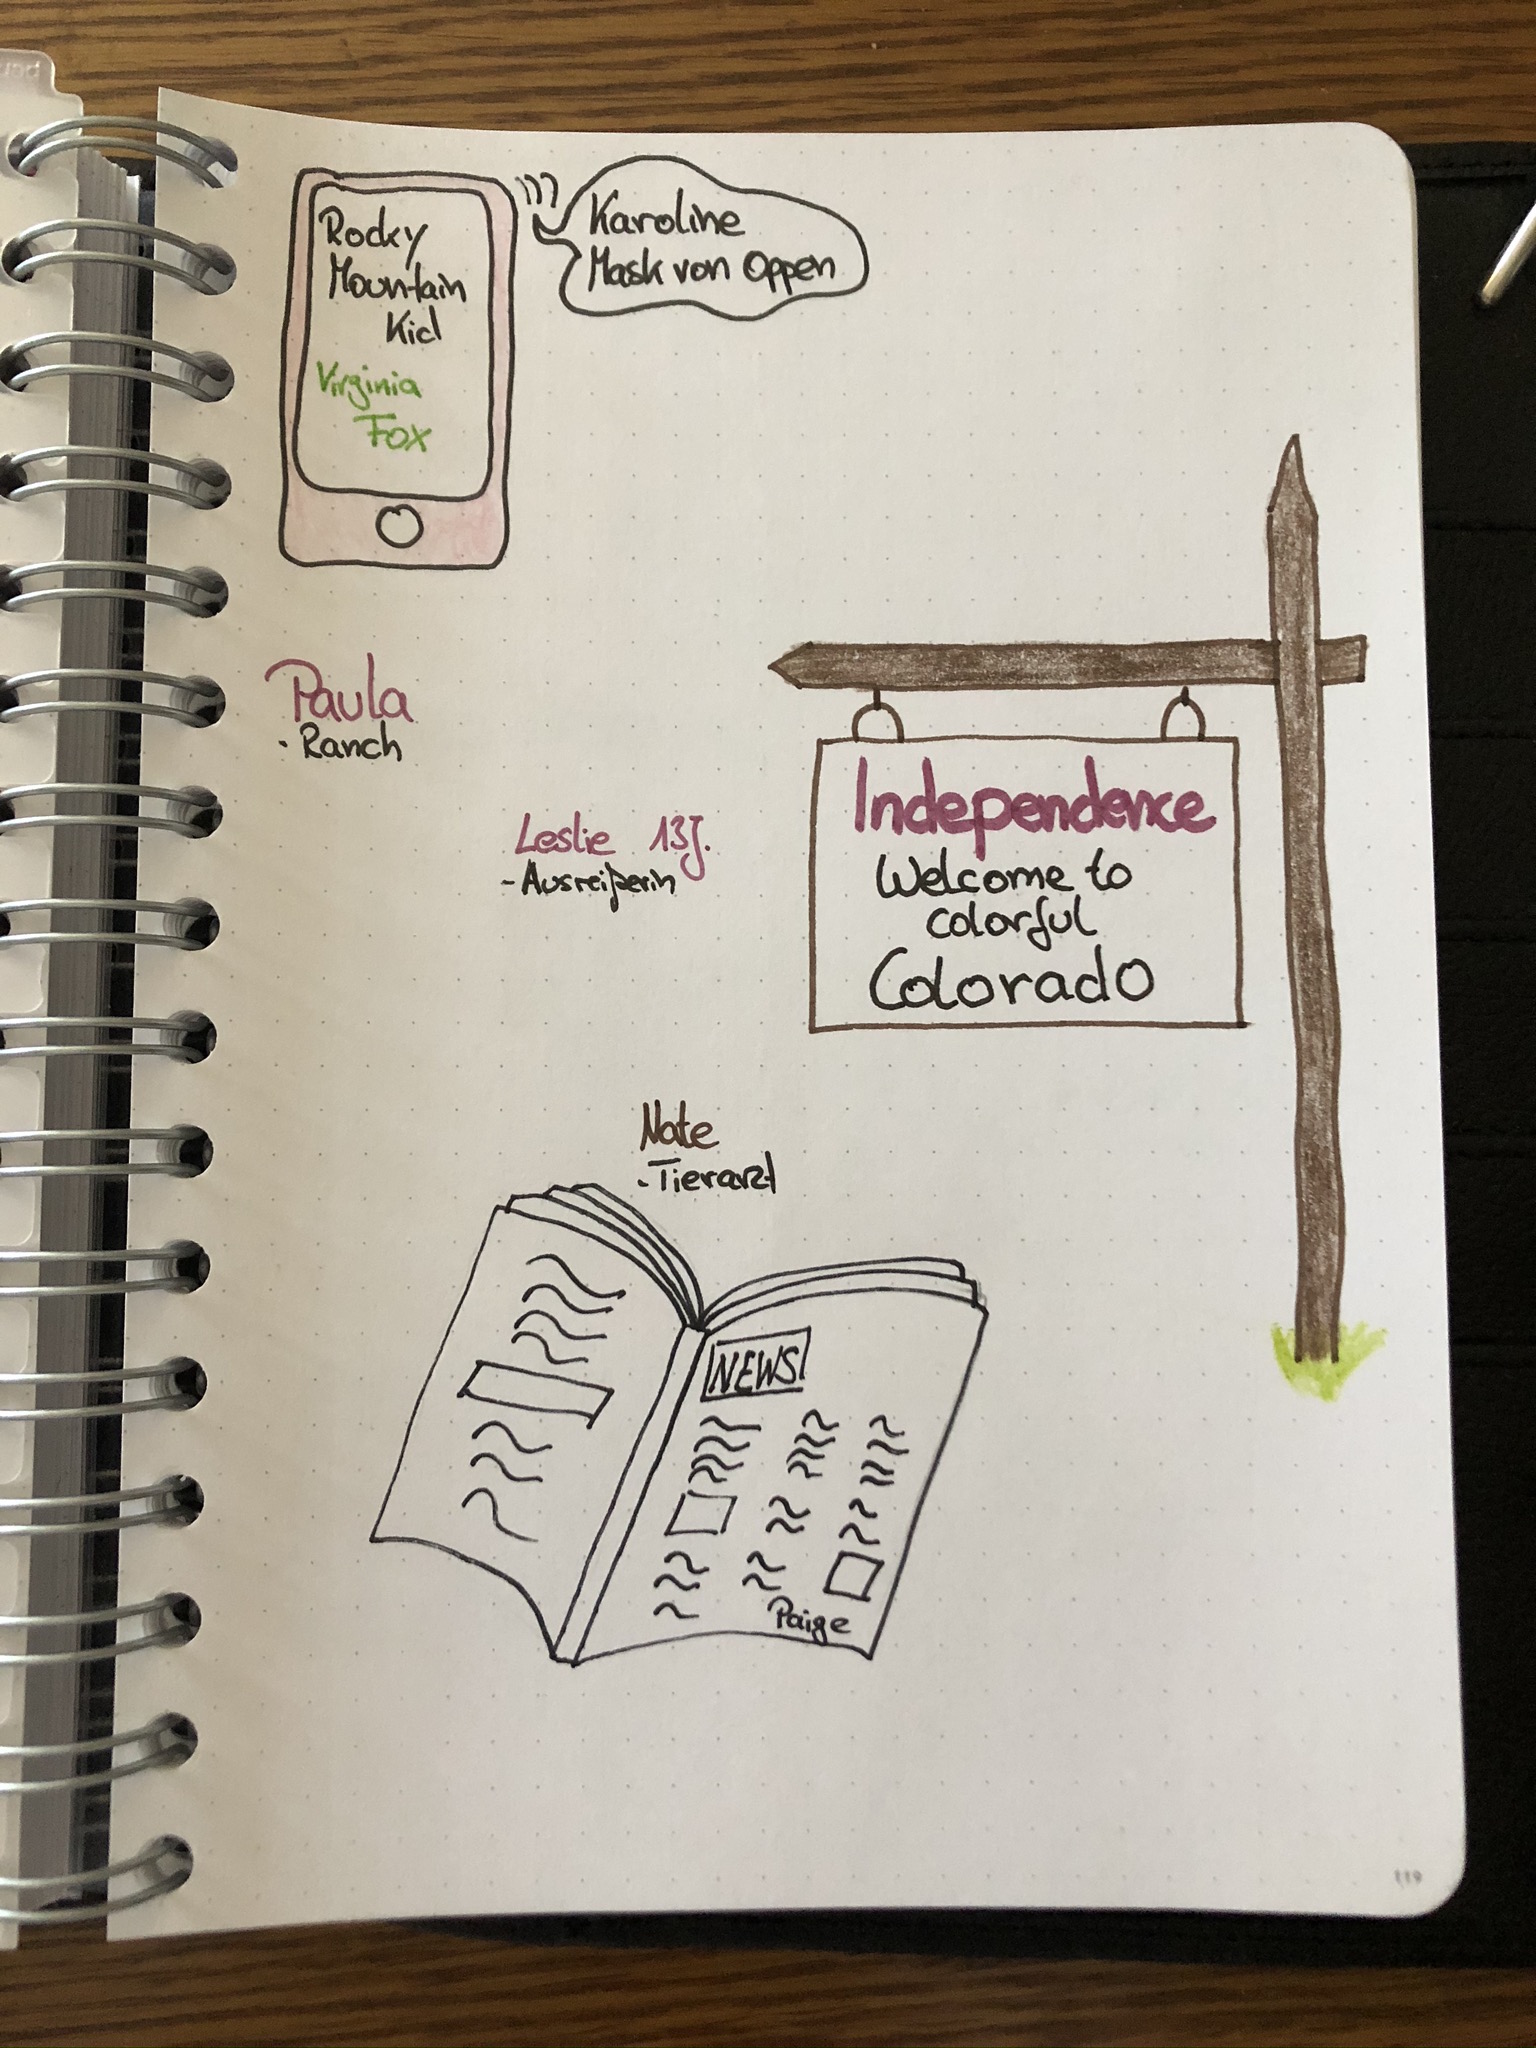 Rocky
Mountain
Kid
Virginia
Fox
Karoline
Mask von Oppen
Paula
- Ranch
Leslie 13J.
- Ausreißerin
Independence
Welcome to
colorful
Colorado
Nate
- Tierarzt
NEWS
Paige
119